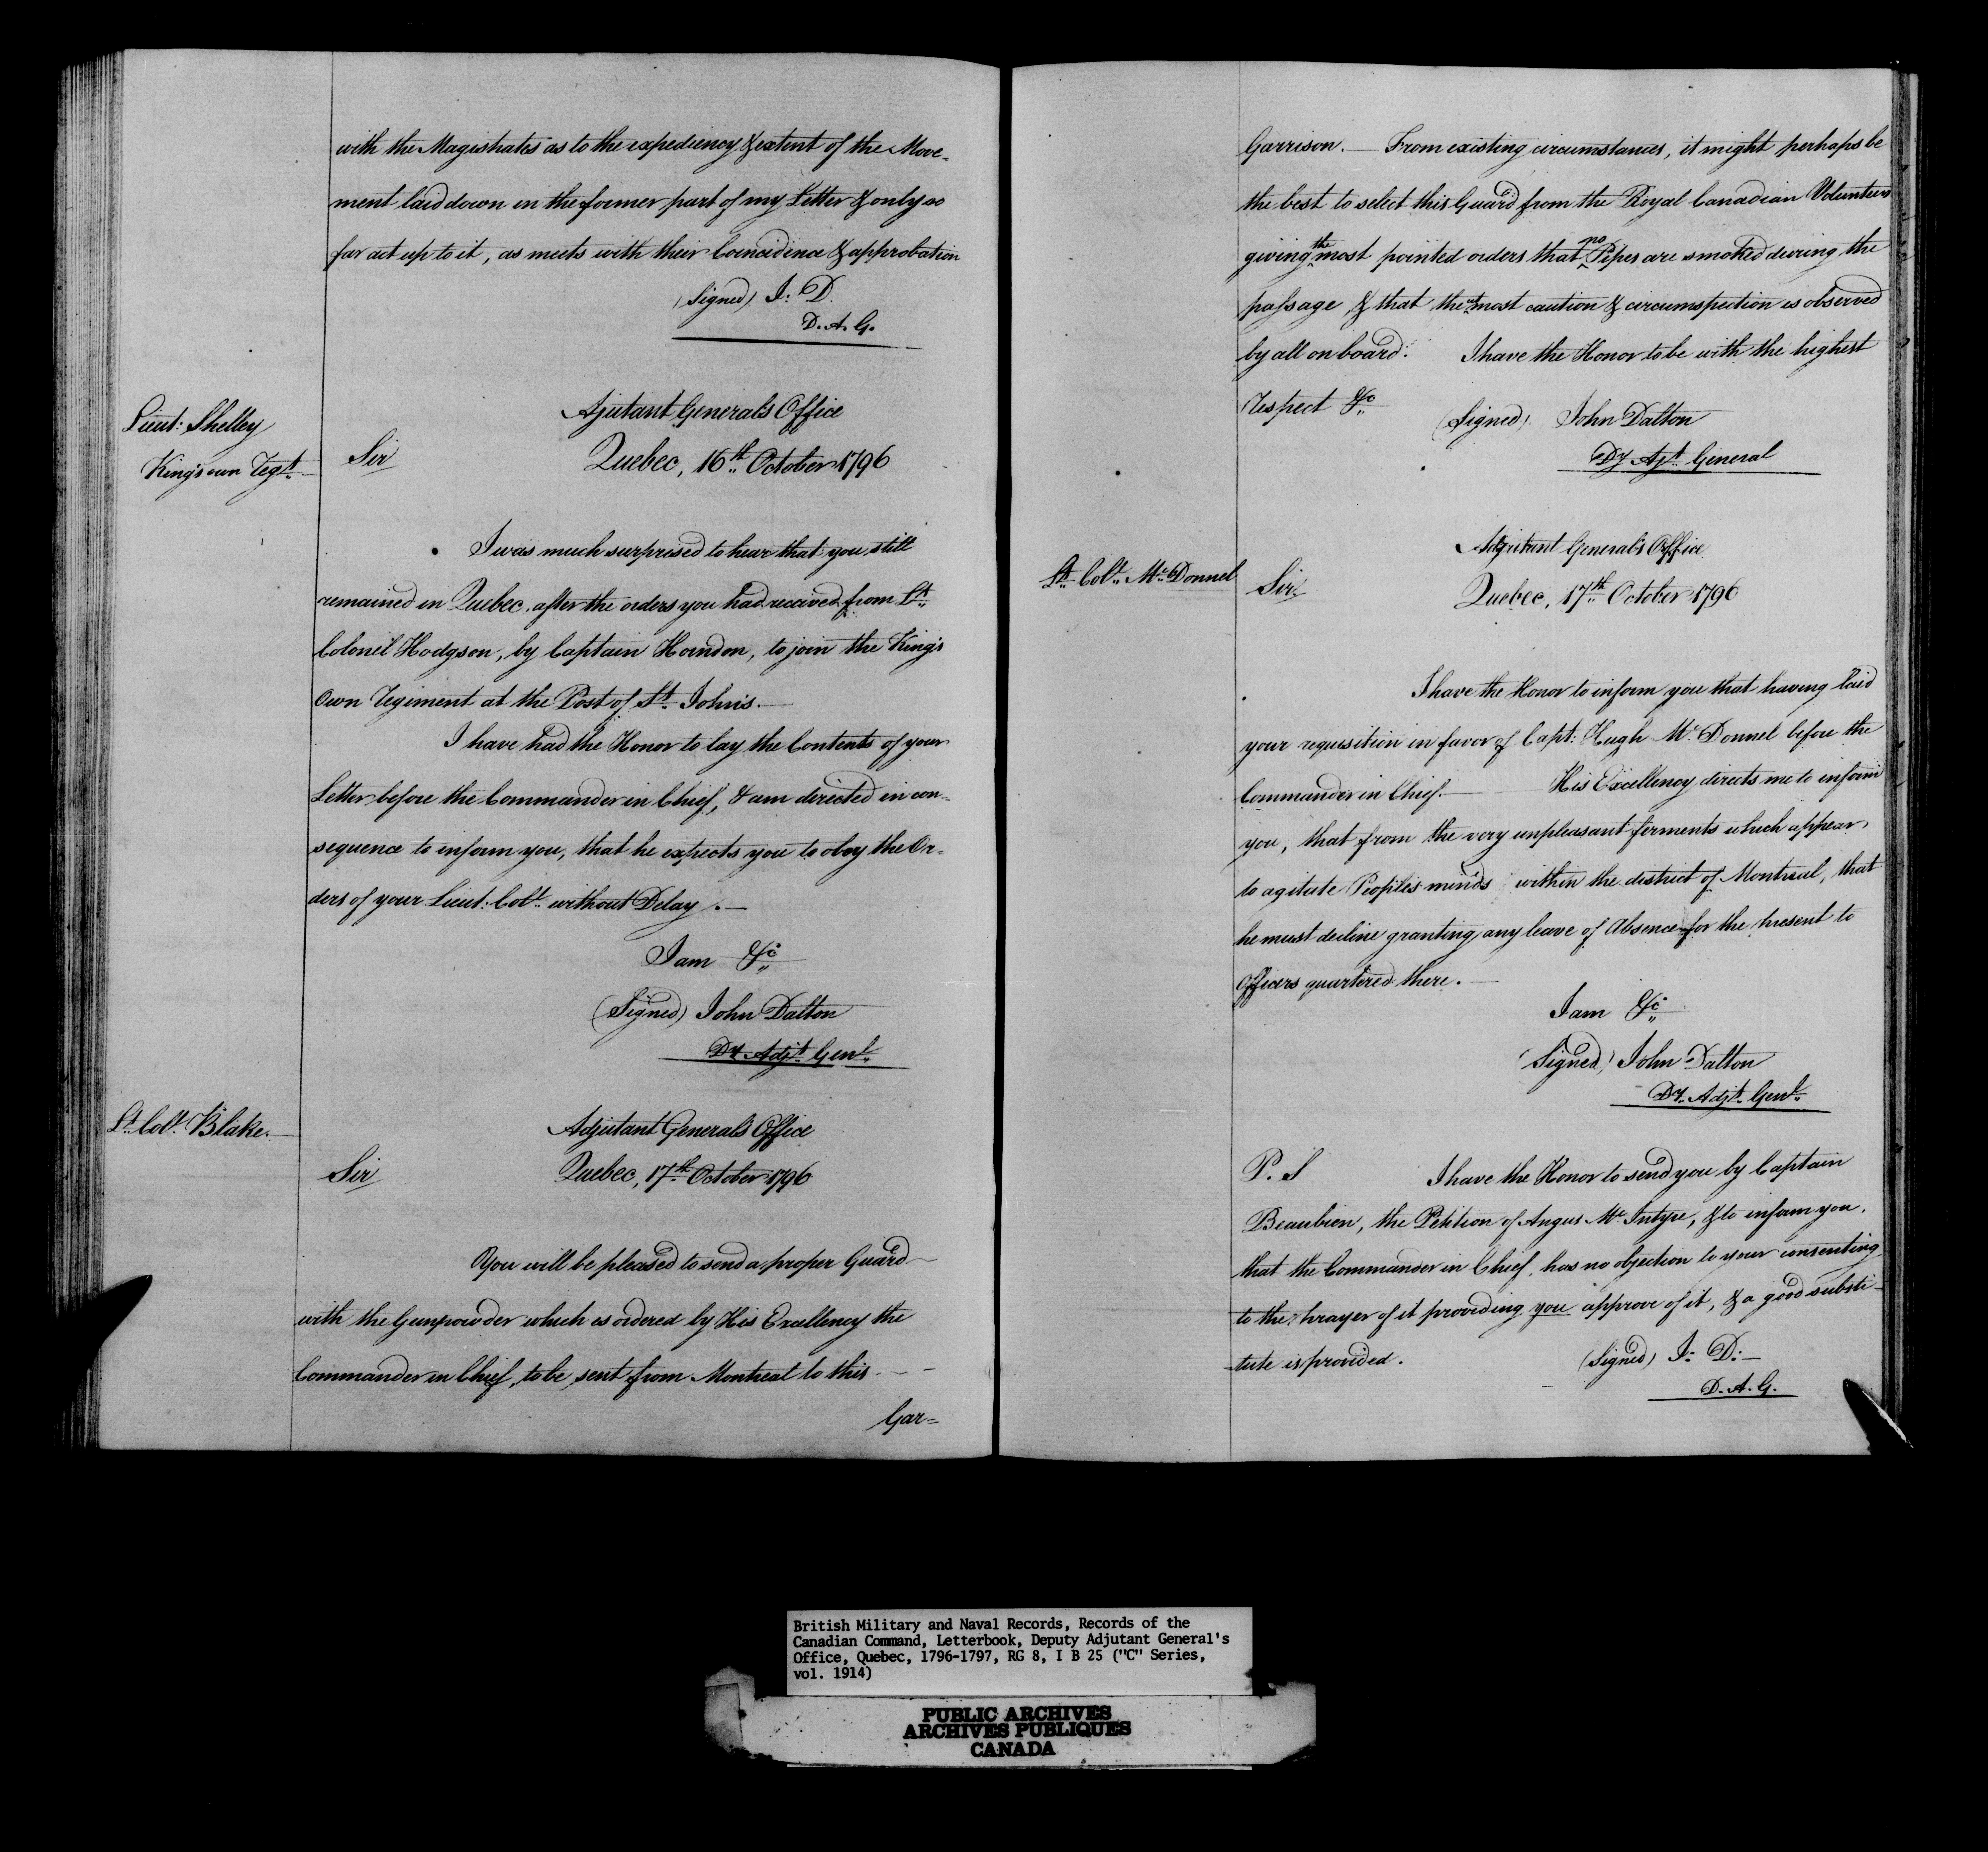 with the Magistrates as to the expediency & extent of the Move-
ment laid down in the former part of my Letter & only so
far act up to it, as meets with their Coincidence & approbation
(Signed) J: D.
D. A. G.
Lieut: Shelley
King's own Regt.
Ajutant General's Office
Sir
Quebec, 16th October 1796
I was much surprised to hear that you still
remained in Quebec, after the orders you had received from Lt.
Colonel Hodgson, by Captain Horndon, to join the King's
Own Regiment at the Post of St. John's.
I have had the Honor to lay the Contents of your
Letter before the Commander in Chief, & am directed in con-
sequence to inform you, that he expects you to obey the Or-
ders of your Lieut: Colo. without Delay.
I am &c
(Signed) John Dalton
Dy. Adjt. Genl.
Lt. Colo. Blake.
Adjutant General's Office
Sir
Quebec, 17th October 1796
You will be pleased to send a proper Guard
with the Gunpowder which is ordered by His Excellency the
Commander in Chief, to be sent from Montreal to this
Gar=
Garrison. From existing circumstances, it might perhaps be
the best to select this Guard from the Royal Canadian Volunteers
giving the most pointed orders that no Pipes are smoked during the
passage, & that the utmost caution & circumspection is observed
by all on board. I have the Honor to be with the highest
respect &c
(Signed) John Dalton
Dy Ajt. General
Adjutant General's Office
Lt. Colo. Mc. Donnel
Sir
Quebec, 17th October 1796
I have the Honor to inform you that having laid
your requisition in favor of Capt: Hugh Mc. Donnel before the
Commander in Chief. His Excellency directs me to inform
you, that from the very unpleasant ferments which appear
to agitate People's minds within the district of Montreal, that
he must decline granting any leave of Absence for the present to
Officers quartered there.
I am &c
(Signed) John Dalton
Dy. Adjt. Genl.
P. S I have the Honor to send you by Captain
Beaubien, the Petition of Angus Mc. Intyre, & to inform you,
that the Commander in Chief, has no objection to your consenting
to the prayer of it providing you approve of it, & a good substi-
-tute is provided.
(Signed) J: D:
D. A. G.
British Military and Naval Records, Records of the
Canadian Command, Letterbook, Deputy Adjutant General's
Office, Quebec, 1796-1797, RG 8, I B 25 ("C" Series,
vol. 1914)
PUBLIC ARCHIVES
ARCHIVES PUBLIQUES
CANADA